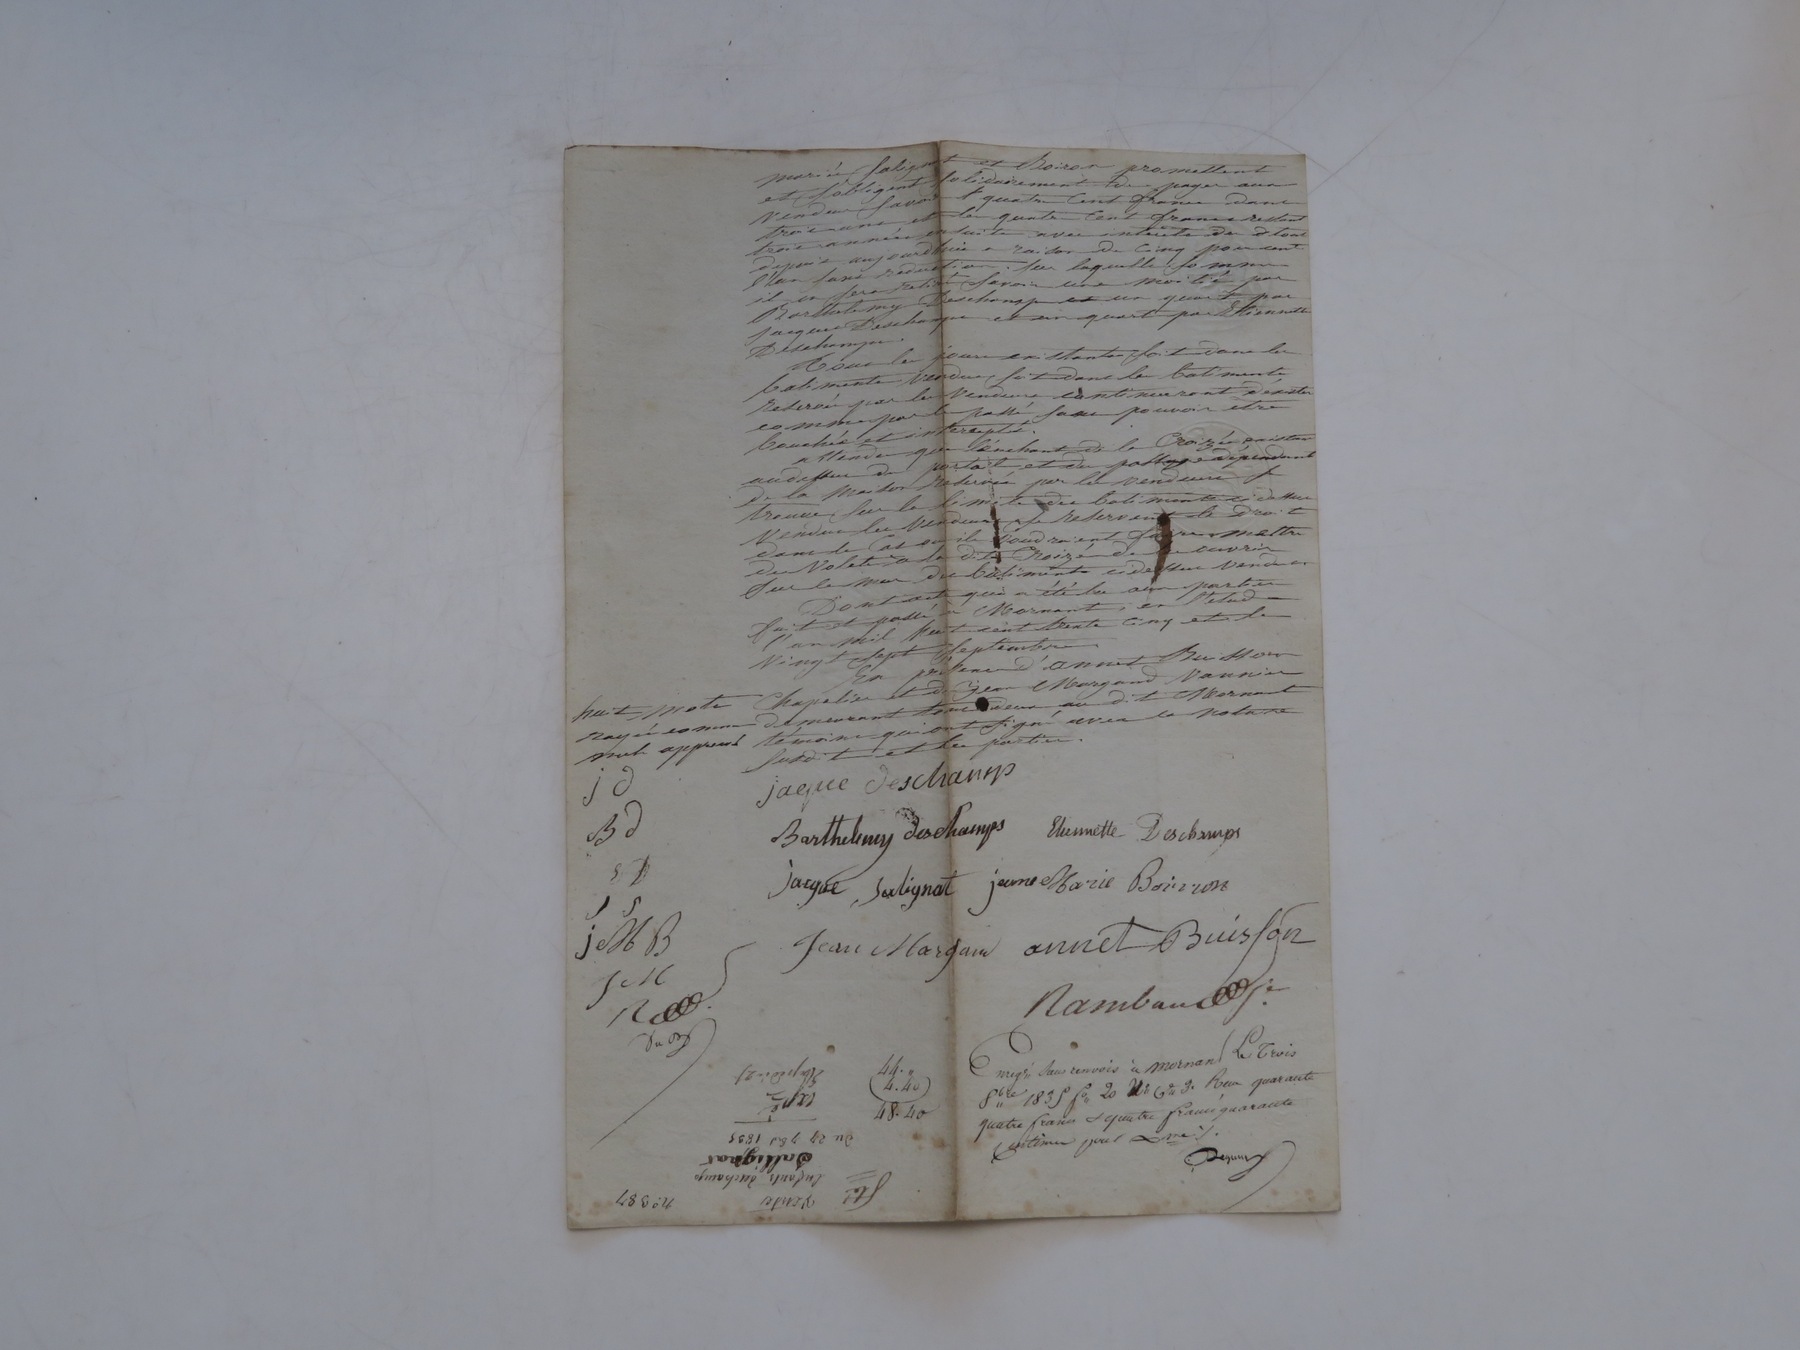 mariés Salignat et Boiron promettent
et s'obligent solidairement de payer aux
vendeurs savoir quatre cent francs dans
trois ans et les quatre cent francs restant
trois années ensuite avec intérêts du tout
depuis aujourdhui a raison de cinq pour cent
l'an sans réduction. sur laquelle somme
il en sera retiré savoir une moitié par
Barthelemy Deschamps et un quart par
Jacques Deschamps et un quart par Etiennette
Deschamps.
Tous les jours existants soit dans les
batiments vendus soit dans les batiments
réservés par les vendeurs continueront d'éxister
comme par le passé sans pouvoir etre
bouchés et interceptés.
attendu que de la Croizée existan
audessus du portail et du passage dépendant
de la maison réservée par les vendeurs se
trouve sur la des batiments ci dessus
vendus les vendeurs se réservent le droit
dans le cas ou ils voudraient faire mettre
des volets a la dite Croizée de les ouvrir
sur le mur des batiments cidessus vendus
Dont acte qui a été lu aux parties
fait et passé a Mornant, en l'étude
l'an mil huit cent trente cinq et le
vingt sept septembre
En présence d'annet Buisson
Chapelier et de Jean Margand vannier
demeurant tous deux au dit Mornant
témoins qui ont signé avec le notaire
susdit et les parties.
huit mots
rayés comme
nuls approuvés
j d
B d
E D
J S
j M B
J M
R
jaque deschamp
Barthelemy deschamps Etiennette Deschamps
jacque Salignat jeanne Marie Boirron
Jean Margand annet Buisson
Rambau
Enregé sans renvois à mornant Le Trois
8bre 1835 fo 20 Vo Ce 3. Reçu quarante
quatre francs & quatre francs quarante
centimes pour Dme
44. "
4. 40
48. 40
No 387
Vente
enfants deschamp
Sallignat
du 27 7bre 1835